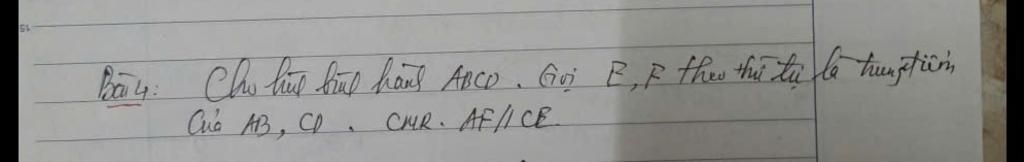 Bài 4: Cho hình bình hành ABCD. Gọi E, F theo thứ tự là trung điểm
Của AB, CD. CMR. AF//CE